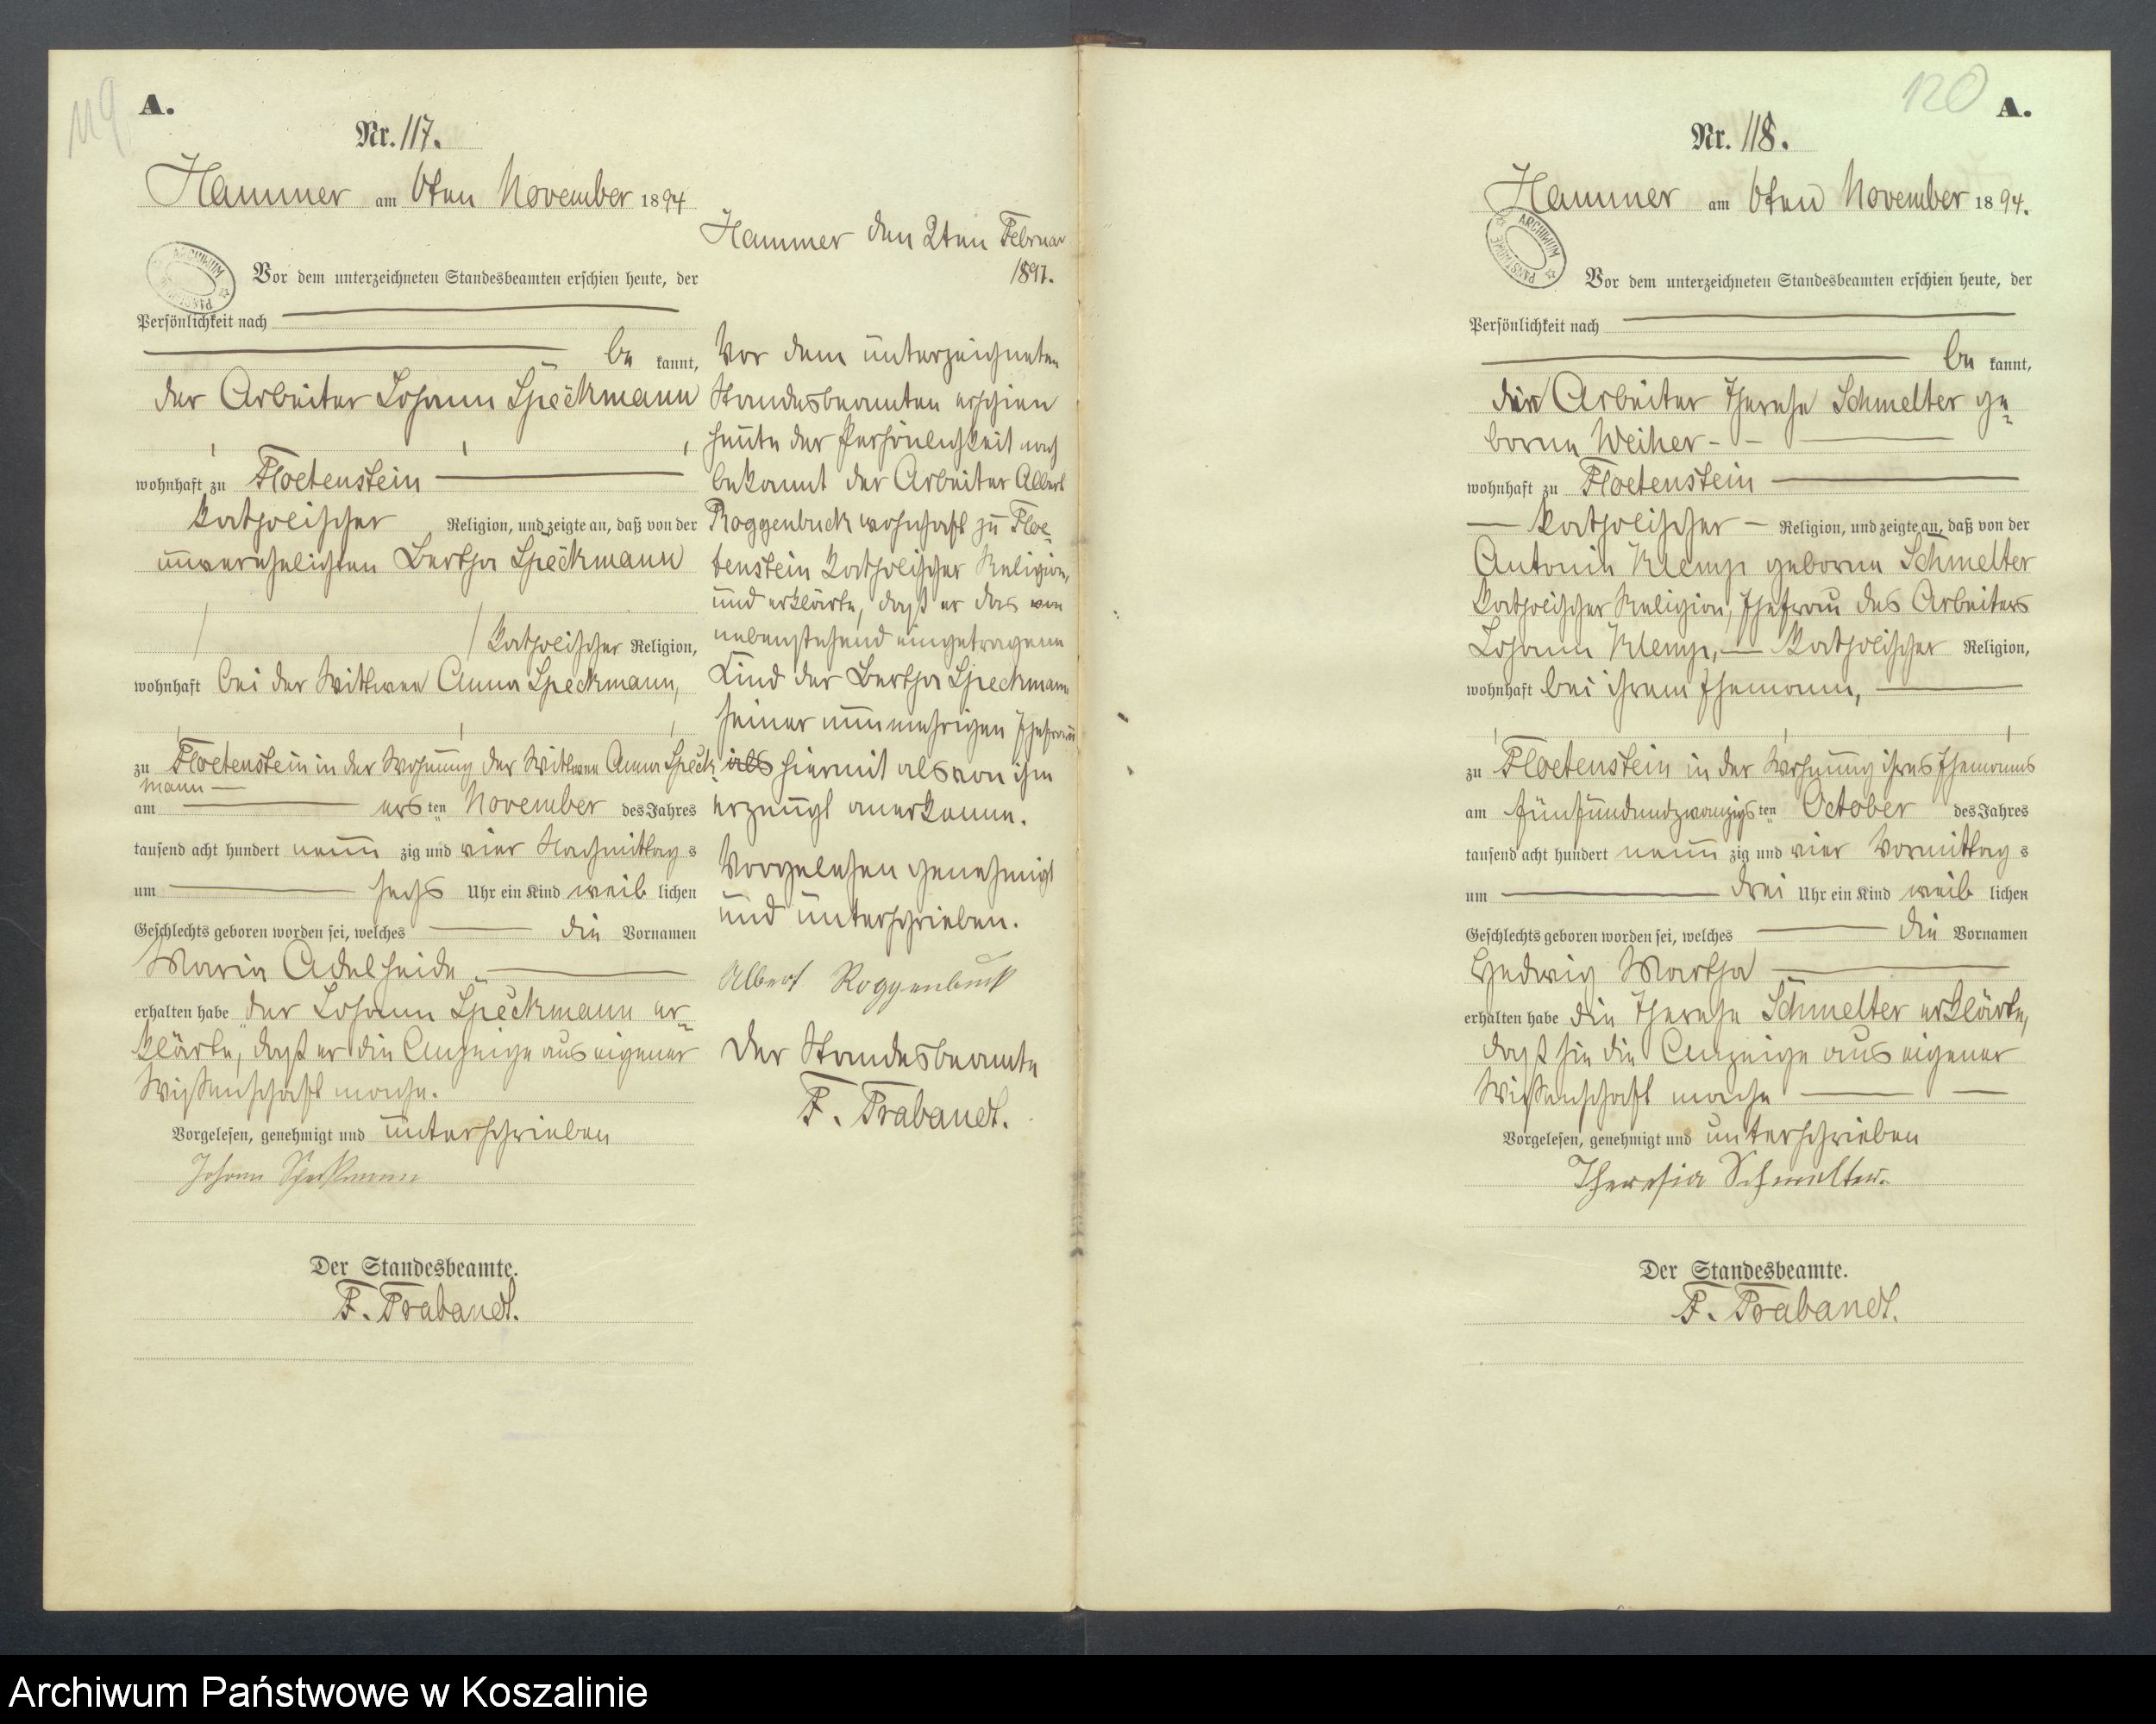 119
A.
Nr. 117.
Hammer am 6ten November 1894
Vor dem unterzeichneten Standesbeamten erschien heute, der
Persönlichkeit nach
be kannt,
der Arbeiter Johann Speckmann
wohnhaft zu Floetenstein
katholischer Religion, und zeigte an, daß von der
unverehelichten Bertha Speckmann
katholischer Religion,
wohnhaft bei der Wittwe Anna Speckmann,
zu Floetenstein in der Wohnung der Wittwe Anna Speck
mann
am ersten November des Jahres
tausend acht hundert neun zig und vier Nachmittag s
um sechs Uhr ein Kind weib lichen
Geschlechts geboren worden sei, welches die Vornamen
Maria Adelheide
erhalten habe der Johann Speckmann er-
klärte, daß er die Anzeige aus eigener
Wissenschaft mache.
Vorgelesen, genehmigt und unterschrieben
Johann Speckmann
Der Standesbeamte.
F. Trabandt.
Hammer den 2ten Februar
1897.
Vor dem unterzeichneten
Standesbeamten erschien
heute der Persönlichkeit nach
bekannt der Arbeiter Albert
Roggenbuck wohnhaft zu Floe-
tenstein katholischer Religion,
und erklärte, daß er das
nebenstehend eingetragene
Kind der Bertha Speckmann
seiner nunmehrigen Ehefrau
hiermit als von ihm
erzeugt anerkenne.
Vorgelesen genehmigt
und unterschrieben.
Albert Roggenbuck
Der Standesbeamte
F. Trabandt.
120
A.
Nr. 118.
Hammer am 6ten November 1894.
ARCHIWUM PAŃSTWOWE
Vor dem unterzeichneten Standesbeamten erschien heute, der
Persönlichkeit nach
be kannt,
die Arbeiter Therese Schmelter ge-
borne Weiher
wohnhaft zu Floetenstein
katholischer Religion, und zeigte an, daß von der
Antonie Klemp geborne Schmelter
katholischer Religion, Ehefrau des Arbeiters
Johann Klemp, katholischer Religion,
wohnhaft bei ihrem Ehemann,
zu Floetenstein in der Wohnung ihres Ehemanns
am fünfundzwanzigsten October des Jahres
tausend acht hundert neun zig und vier Vormittag s
um drei Uhr ein Kind weib lichen
Geschlechts geboren worden sei, welches die Vornamen
Hedwig Martha
erhalten habe die Therese Schmelter erklärte,
daß sie die Anzeige aus eigener
Wissenschaft mache
Vorgelesen, genehmigt und unterschrieben
Theresia Schmelter.
Der Standesbeamte.
F. Trabandt.
Archiwum Państwowe w Koszalinie